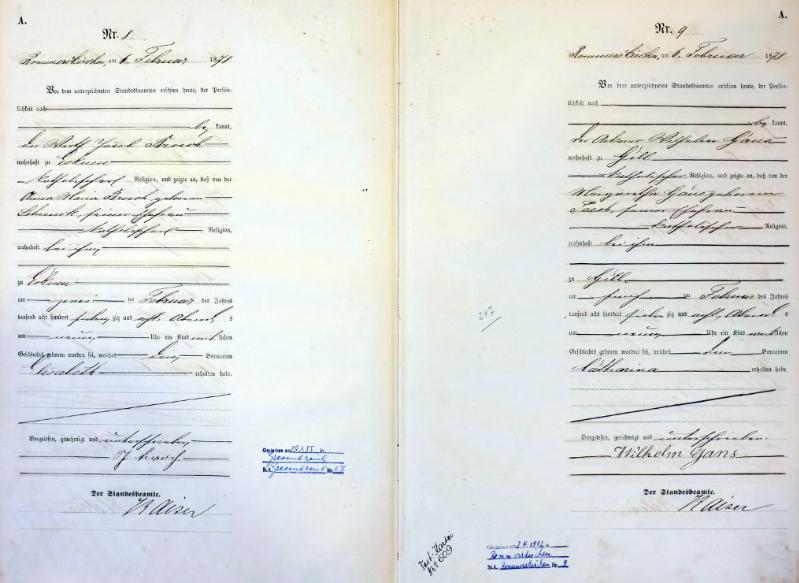 A.
Nr. 8
Rommerskirchen, am 6. Februar 1878
Vor dem unterzeichneten Standesbeamten erschien heute, der Persön-
lichkeit nach
be kannt,
der Wirth Jacob Broich
wohnhaft zu Eckum
katholischer Religion, und zeigte an, daß von der
Anna Maria Broich geborenen
seiner Ehefrau
katholischer Religion,
wohnhaft bei ihm
zu Eckum
am zwei ten Februar des Jahres
tausend acht hundert sieben zig und acht, Abends
um neun Uhr ein Kind weiblichen
Geschlechts geboren worden sei, welches den Vornamen
Elisabeth erhalten habe.
Vorgelesen, genehmigt und unterschrieben
J Broich
Der Standesbeamte.
Kaiser
Gestorben am 19.3.55 in
Grevenbroich
St.A. Grevenbroich Nr. 67
A.
Nr. 9
Rommerskirchen, am 6. Februar 1878
Vor dem unterzeichneten Standesbeamten erschien heute, der Persön-
lichkeit nach
be kannt,
der Ackerer Wilhelm Gans
wohnhaft zu Gill
katholischer Religion, und zeigte an, daß von der
Margaretha Gans geborenen
seiner Ehefrau
katholischer Religion
wohnhaft bei ihm
zu Gill
am fünf ten Februar des Jahres
tausend acht hundert sieben zig und acht, Abends
um neun Uhr ein Kind weiblichen
Geschlechts geboren worden sei, welches den Vornamen
Catharina erhalten habe.
Vorgelesen, genehmigt und unterschrieben.
Wilhelm Gans
Der Standesbeamte.
Kaiser
247
Nr 609
Gestorben am 2.4.1942 in
Rommerskirchen
St.A. Rommerskirchen Nr. 9